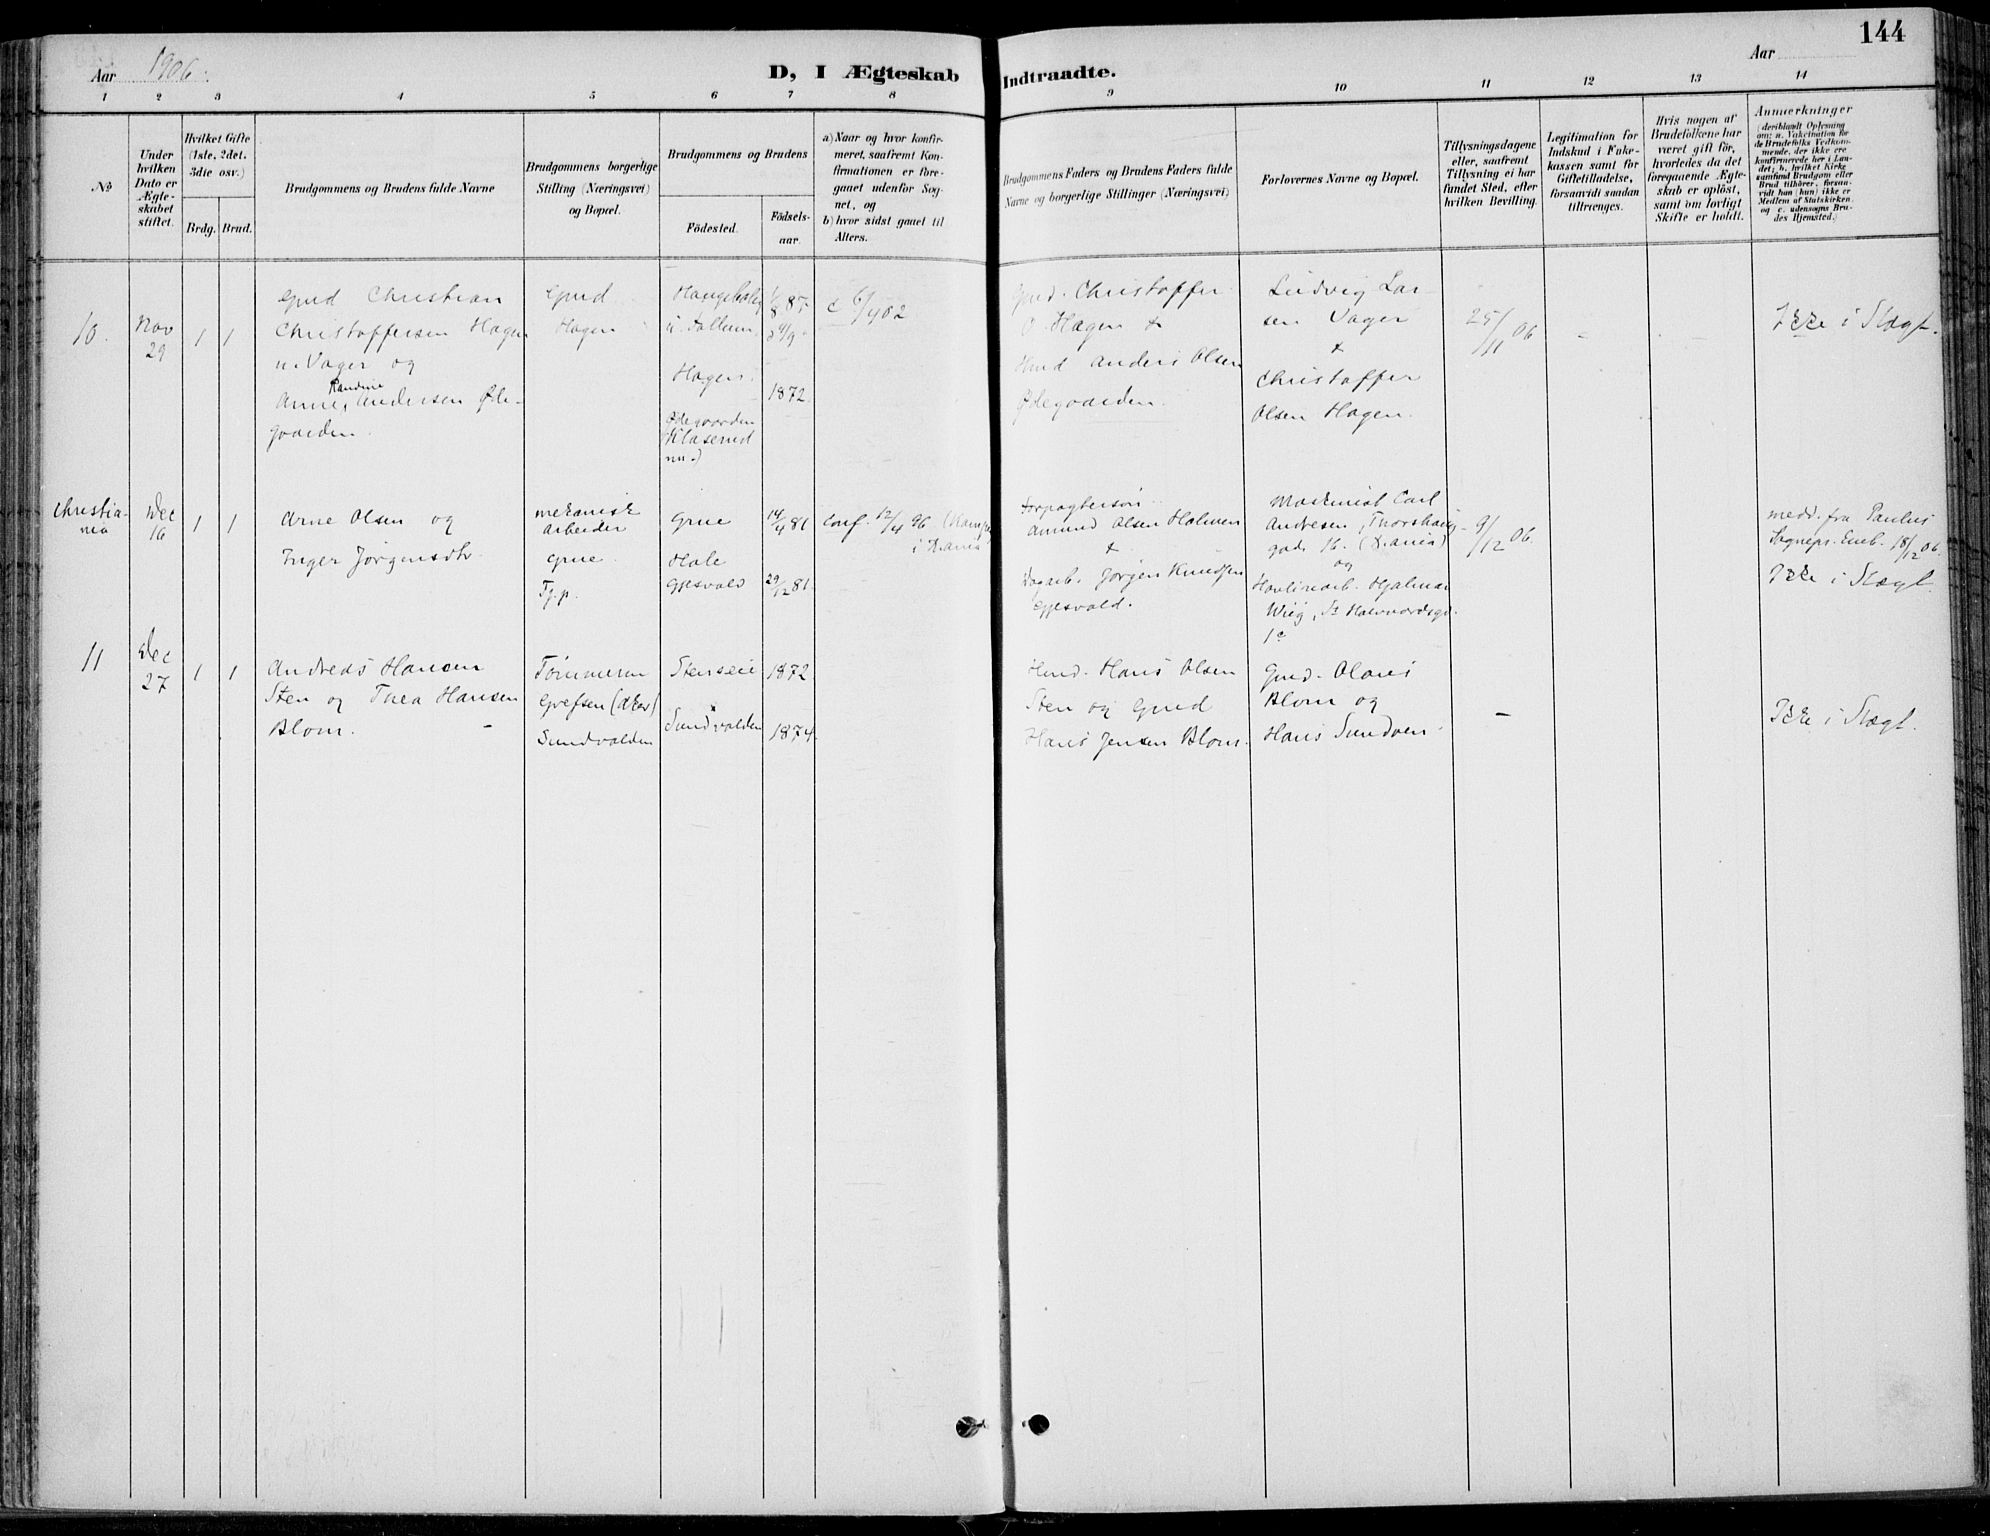 144
Aar 1906.
D, I Ægteskab Indtraadte.
Aar
1 2 3 4 5 6 7 8 9 10 11 12 13 14
№
Under
hvilken
Dato er
Ægte-
skabet
stiftet.
Hvilket Gifte
(1ste, 2det,
3die osv.)
Brdg. Brud.
Brudgommens og Brudens fulde Navne
Brudgommens borgerlige
Stilling (Næringsvei)
og Bopæl.
Brudgommens og Brudens
Födested.
Födsels-
aar.
a) Naar og hvor konfir-
meret, saafremt Kon-
firmationen er fore-
gaaet udenfor Sog-
net, og
b) hvor sidst gaaet til
Alters.
Brudgommens Faders og Brudens Faders fulde
Navne og borgerlige Stillinger (Næringsvei)
Forlovernes Navne og Bopæl.
Tillysningsdagene
eller, saafremt
Tillysning ei har
fundet Sted, efter
hvilken Bevilling.
Legitimation for
Indskud i Enke-
kassen samt for
Giftetilladelse,
forsaavidt saadan
tiltrænges.
Hvis nogen af
Brudefolkene har
været gift för,
hvorledes da det
foregaaende Ægte-
skab er oplöst,
samt om lovligt
Skifte er holdt.
Anmerkninger
(deriblandt Oplysning
om: a. Vakcination for
de Brudefolks Vedkom-
mende, der ikke ere
konfirmerede her i Lan-
det; b. hvilket Kirke-
samfund Brudgom eller
Brud tilhörer, forsaa-
vidt han (hun) ikke er
Medlem af Statskirken,
og c. udensogns Bru-
des Hjemsted.)
10.
Nov
29
1 1
Gmd Christian
Christoffersen Hagen
n. Vager og
Randine
Anne Andersen Øde-
gaarden.
Gmd
Hagen
Hagen
1872
Ødegaarden
(Klaserud
nu.)
c 6/4 02
Gmd. Christoffer
O. Hagen +
Hmd Anders Olsen
Ødegaarden.
Ludvig Lar-
sen Vager
+
Christoffer
Olsen Hagen.
25/11 06
-
Ikke i Slægt.
Christia-
nia
Dec
16
1 1
Arne Olsen og
Inger Jörgensdtr.
mekanisk
arbeider
Grue.
Tj.p.
Grue
Hole
Gjesvold
14/4 81
29/12 81.
conf. 12/4 96
i Kr.ania
Forpagterson
Amund Olsen Holmen
+
Dagarb. Jörgen Knudsen
Gjesvold.
Maskinist Carl
Andresen, Thorshaug-
gade 16. (Kr.ania)
og
Hjalmar
Wiig, St Halvvardsgd.
1c
9/12 06.
medd. fra Paulus
Sognepr. Emb. 18/12 06.
Ikke i Slægt.
11
Dec
27
1 1
Andreas Hansen
Sten og Thea Hansen
Blom.
Tömmerm
Grefsen (Aker)
Sundvolden
Stenseie
Sundvolden
1872
1874.
Hmd. Hans Olsen
Sten og Gmd
Hans Jensen Blom.
Gmd. Olaus
Blom og
Hans Sundöen.
-
Ikke i Slægt.